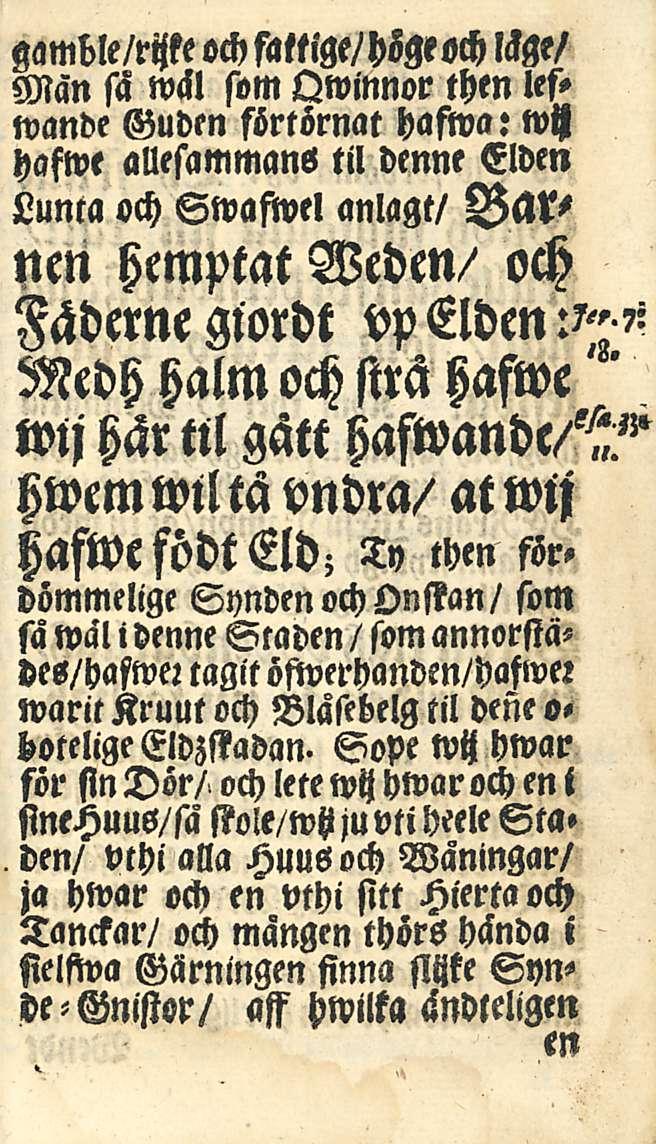 gamble/rijke och fattige/höge och låge/
Män så wäl som Qwinnor then lef-
wande Guden förtörnat hafwa: wij
hafwe allesammans til denne Elden
Lunta och Swafwel anlagt/ Bar-
nen hemptat Weden/ och
Fäderne giordt vp Elden: Jer. 7:
18.
Medh halm och strå hafwe
wij här til gått hafwande/ Esa. 33:
11.
hwem wil tå vndra/ at wij
hafwe födt Eld; Ty then för-
dömmelige Synden och Onskan/ som
så wäl i denne Staden/ som annorstä-
des/hafwer tagit öfwerhanden/hafwer
warit Kruut och Blåsebelg til deñe o-
botelige Eldzskadan. Sope wij hwar
för sin Dör/ och lete wij hwar och en i
sine Huus/så skole/wij ju vti heele Sta-
den/ vthi alla Huus och Wåningar/
ja hwar och en vthi sitt Hierta och
Tanckar/ och mången thörs hända i
sielfwa Gärningen finna slijke Syn-
de-Gnistor/ aff hwilka ändteligen
en